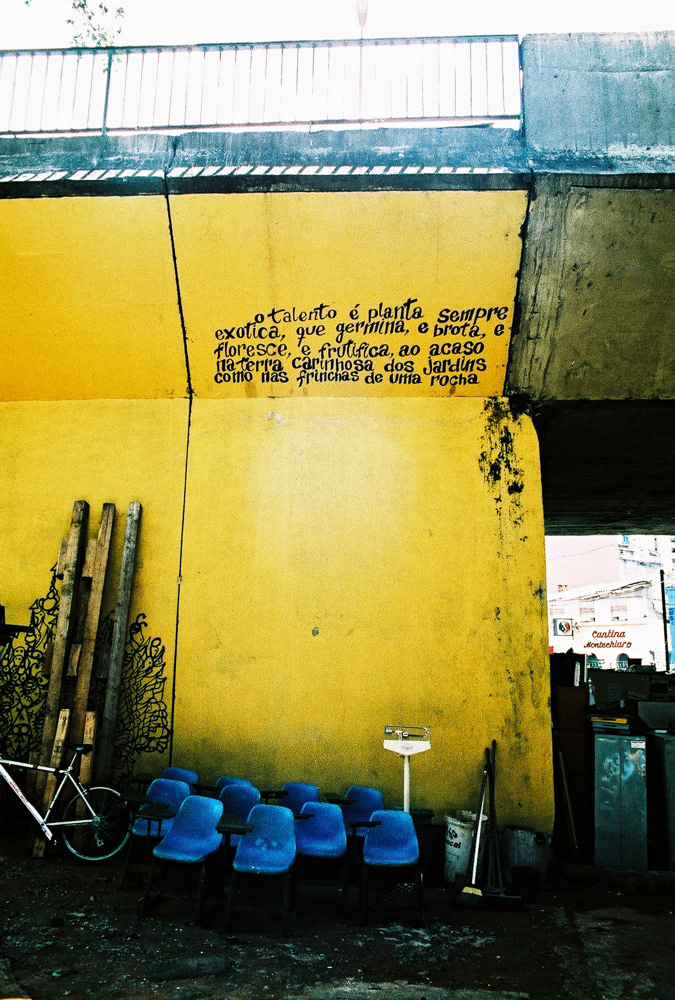 o talento é planta sempre
exotica, que germina, e brota, e
floresce, e frutifica, ao acaso
na terra carinhosa dos jardins
como nas frinchas de uma rocha
Cantina
Montechiaro